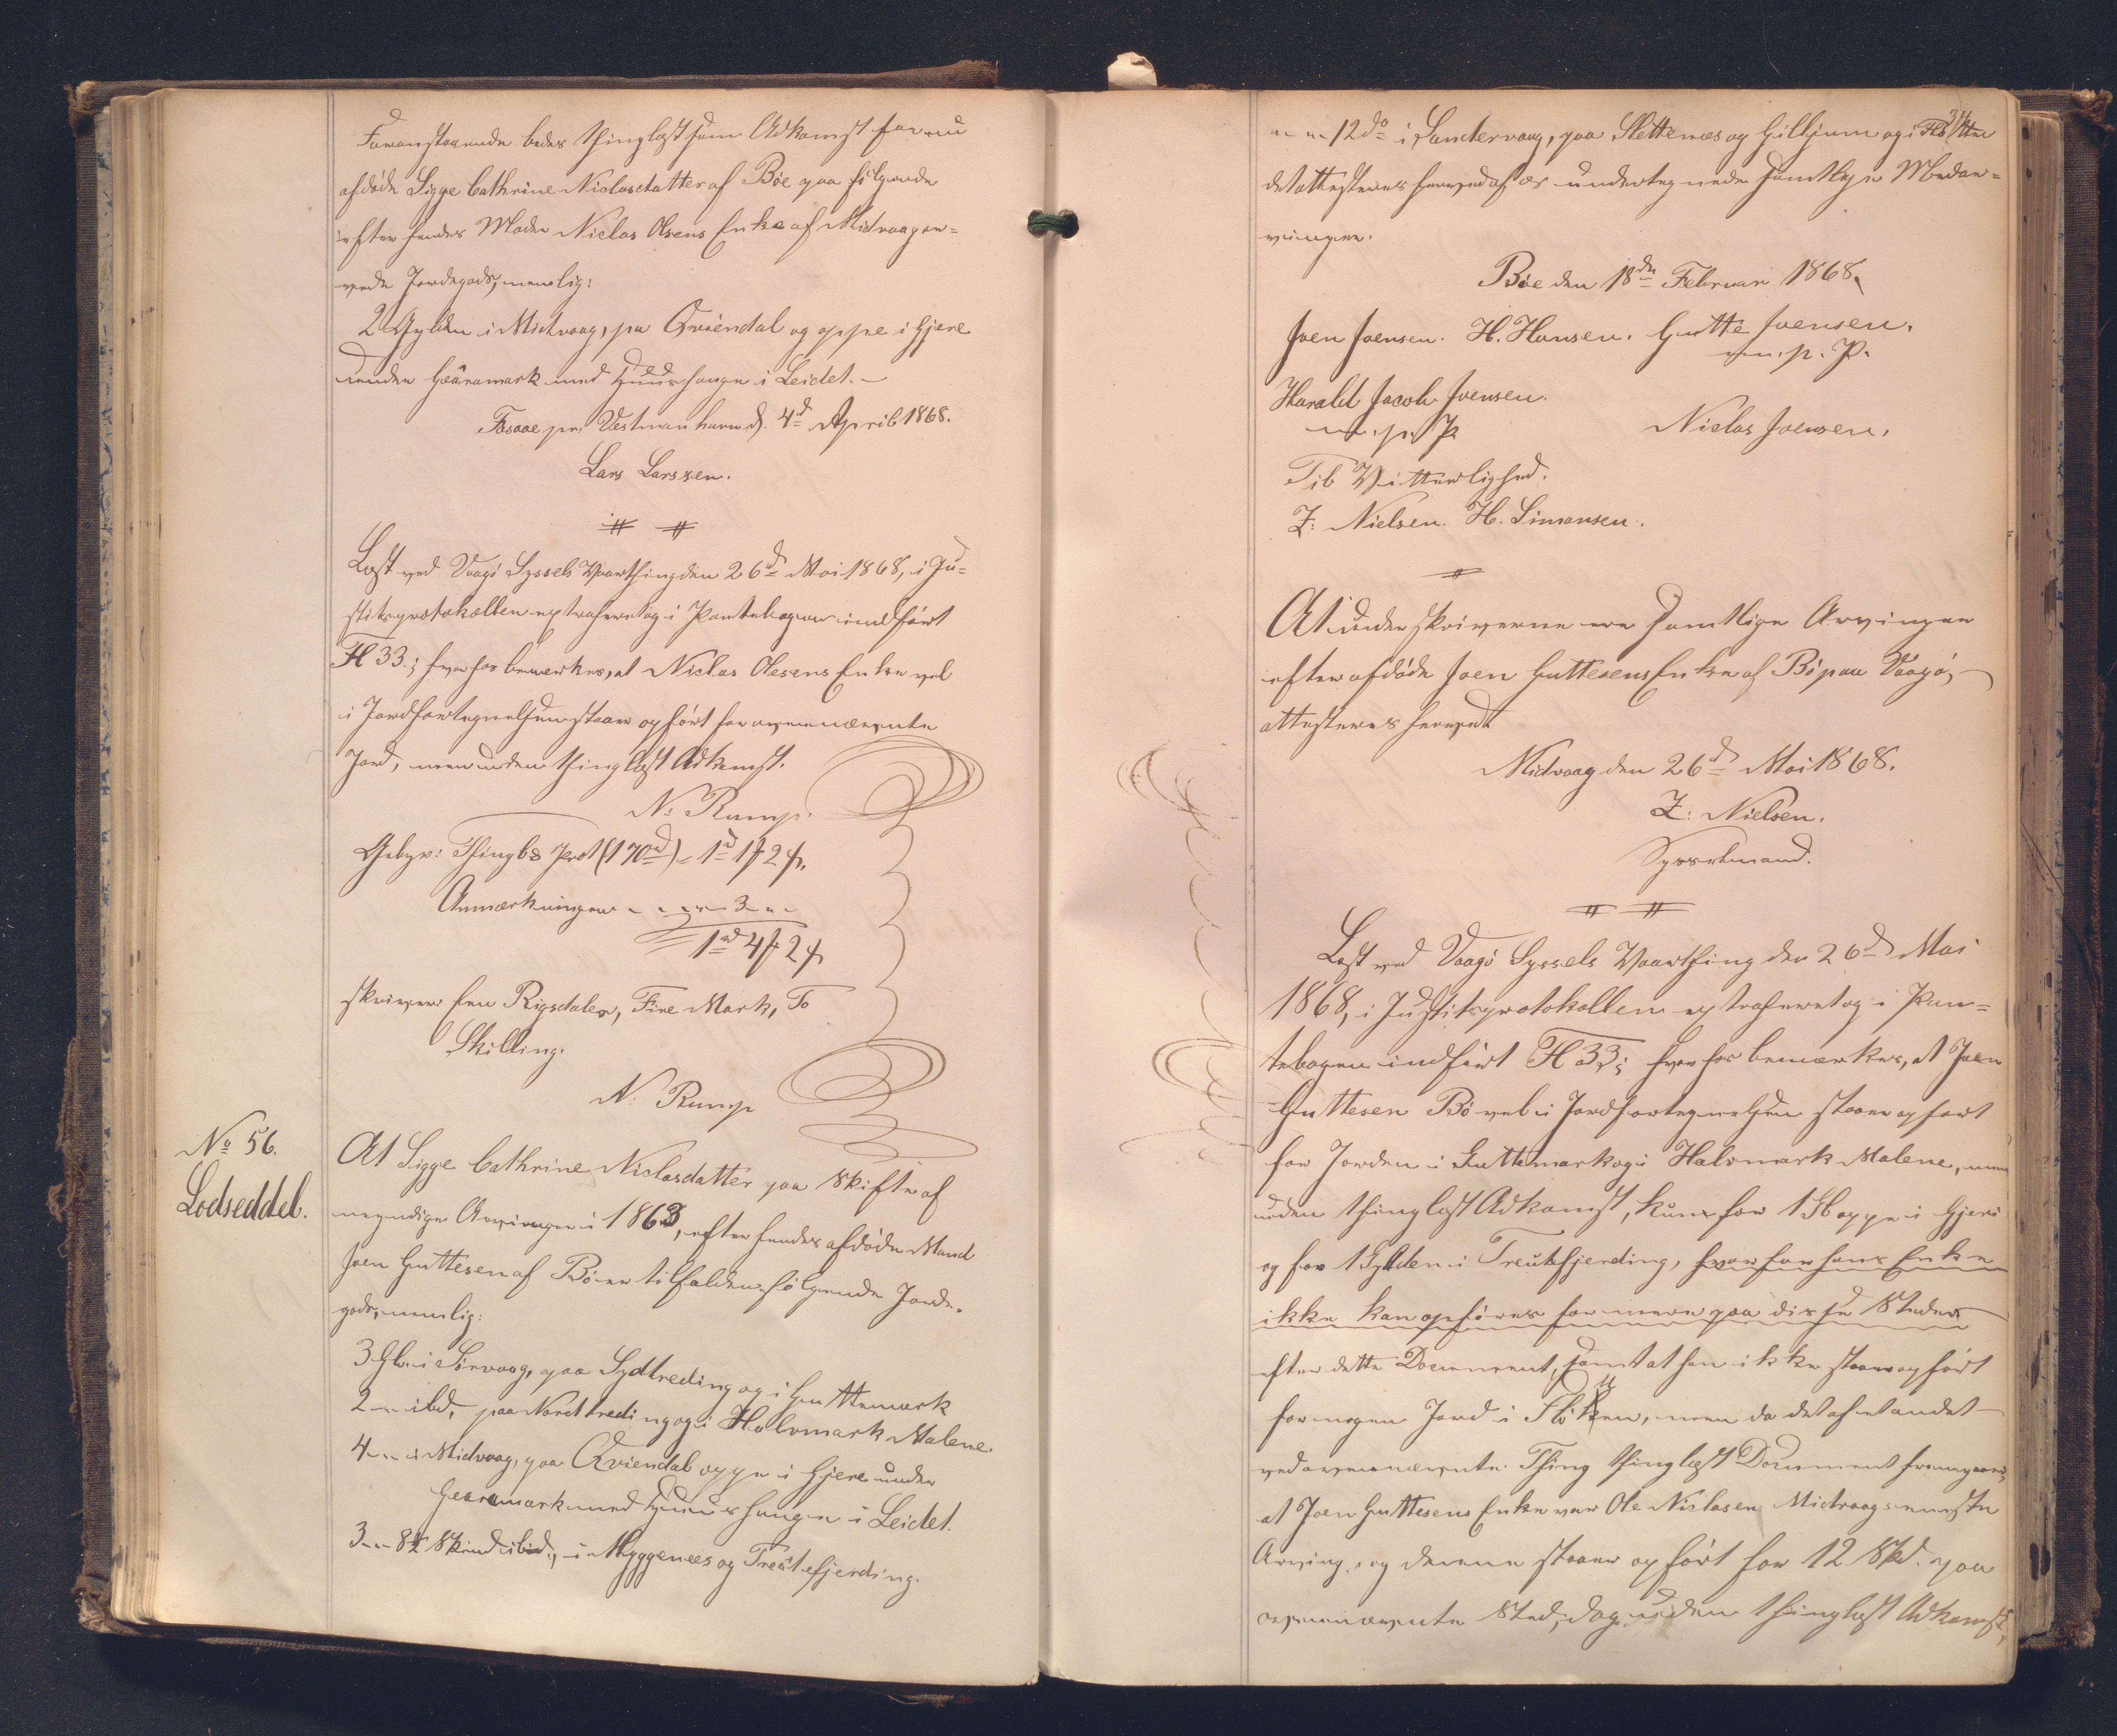 Foranstaaende bedes thinglæst som Adkomst for nu
afdøde Sigge Cathrine Niclasdatter af Bøe paa følgende
efter hendes Moder Niclas Olsens Enke af Midvaag ar-
vede Jordegods, nemlig:
2 Gylden i Midvaag, pa Qviendal og oppe i Gjere
under Geáramark med Huushauge i Leidet.-
Fosaae pr. Vestmanhavn d. 4d April 1868.
Lars Larssen.
Læst ved Vaagø Syssels Vaarthing den 26d Mai 1868, i Ju-
stitsprotokollen extraheret og i Pantebogen indført
Fl 33.; hvorhos bemærkes, at Niclas Olesens Enke vel
i Jordfortegnelsen staaer opført for ovennævnte
Jord, men uden thinglæst Adkomst.
N. Rump.
Gebyr: Thingl & Prot (170rd) = 1rd 1 ₰ 2 ß.
Anmærkningen - - - 3 - -
= 1rd 4 ₰ 2 ß
skriver: Een Rigsdaler, Fire Mark, To
Skilling.
N: Rump
No 56.
Lodseddel.
At Sigge Cathrine Niclasdatter paa Skifte af
myndige Arvinger i 1863, efter hendes afdøde Mand
Joen Guttesen af Bø er tilfalden følgende Jorde-
gods, nemlig:
3 Gl. i Sørvaag, paa Sydtreding og i Guttemark
2 -"- ibd, paa Nordtreding og i Halvmark Malene.
4 -"- i Midvaag, paa Qviendal oppe i Gjere under
Gearamark med Huushauge i Leidet.
3 -"- 8½ Skind ibid., i Myggenees og Treútefjerding.
34
-"- -"- 12 do i Sandervaag, paa Slettenæs og Gilljum og i
det attesteres herved af os undertegnede samtlige Medar-
vinger.
Bøe den 18de Februar 1868.
Joen Joensen. H. Hansen. Gutte Joensen.
m. p. P.
Harald Jacob Joensen.
m. p. P. Niclas Joensen.
Til Vitterlighed.
Z: Nielsen. H. Simonsen.
At Underskriverne ere samtlige Arvinger
efter afdøde Joen Guttesens Enke af Bø paa Vaagø,
attesteres herved
Midvaag den 26d Mai 1868.
Z: Nielsen.
Sysselmand.
Læst ved Vaagø Syssels Vaarthing den 26d Mai
1868, i Justitsprotokollen extraheret og i Pan-
tebogen indført Fl 33; hvorhos bemærkes, at Joen
Guttesen Bø vel i Jordfortegnelsen staaer opført
for Jorden i Guttemark og i Halvmark Malene, men
uden thinglæst Adkomst, kun for 1 Skp oppe i Gjeri
og for 1 Gylden i Treútefjerding, hvorfor hans Enke
ikke kan opføres for mere paa disse Steder
efter dette Document, samt at han ikke staaer opført
for nogen Jord i men da det af et andet
ved ovennævnte Thing thinglæst Document fremgaaer,
at Joen Guttesens Enke var Ole Niclasen Midvaags eneste
Arving, og denne staaer opført for 12 Skd. paa
ovennævnte Sted, dog uden thinglæst Adkomst,